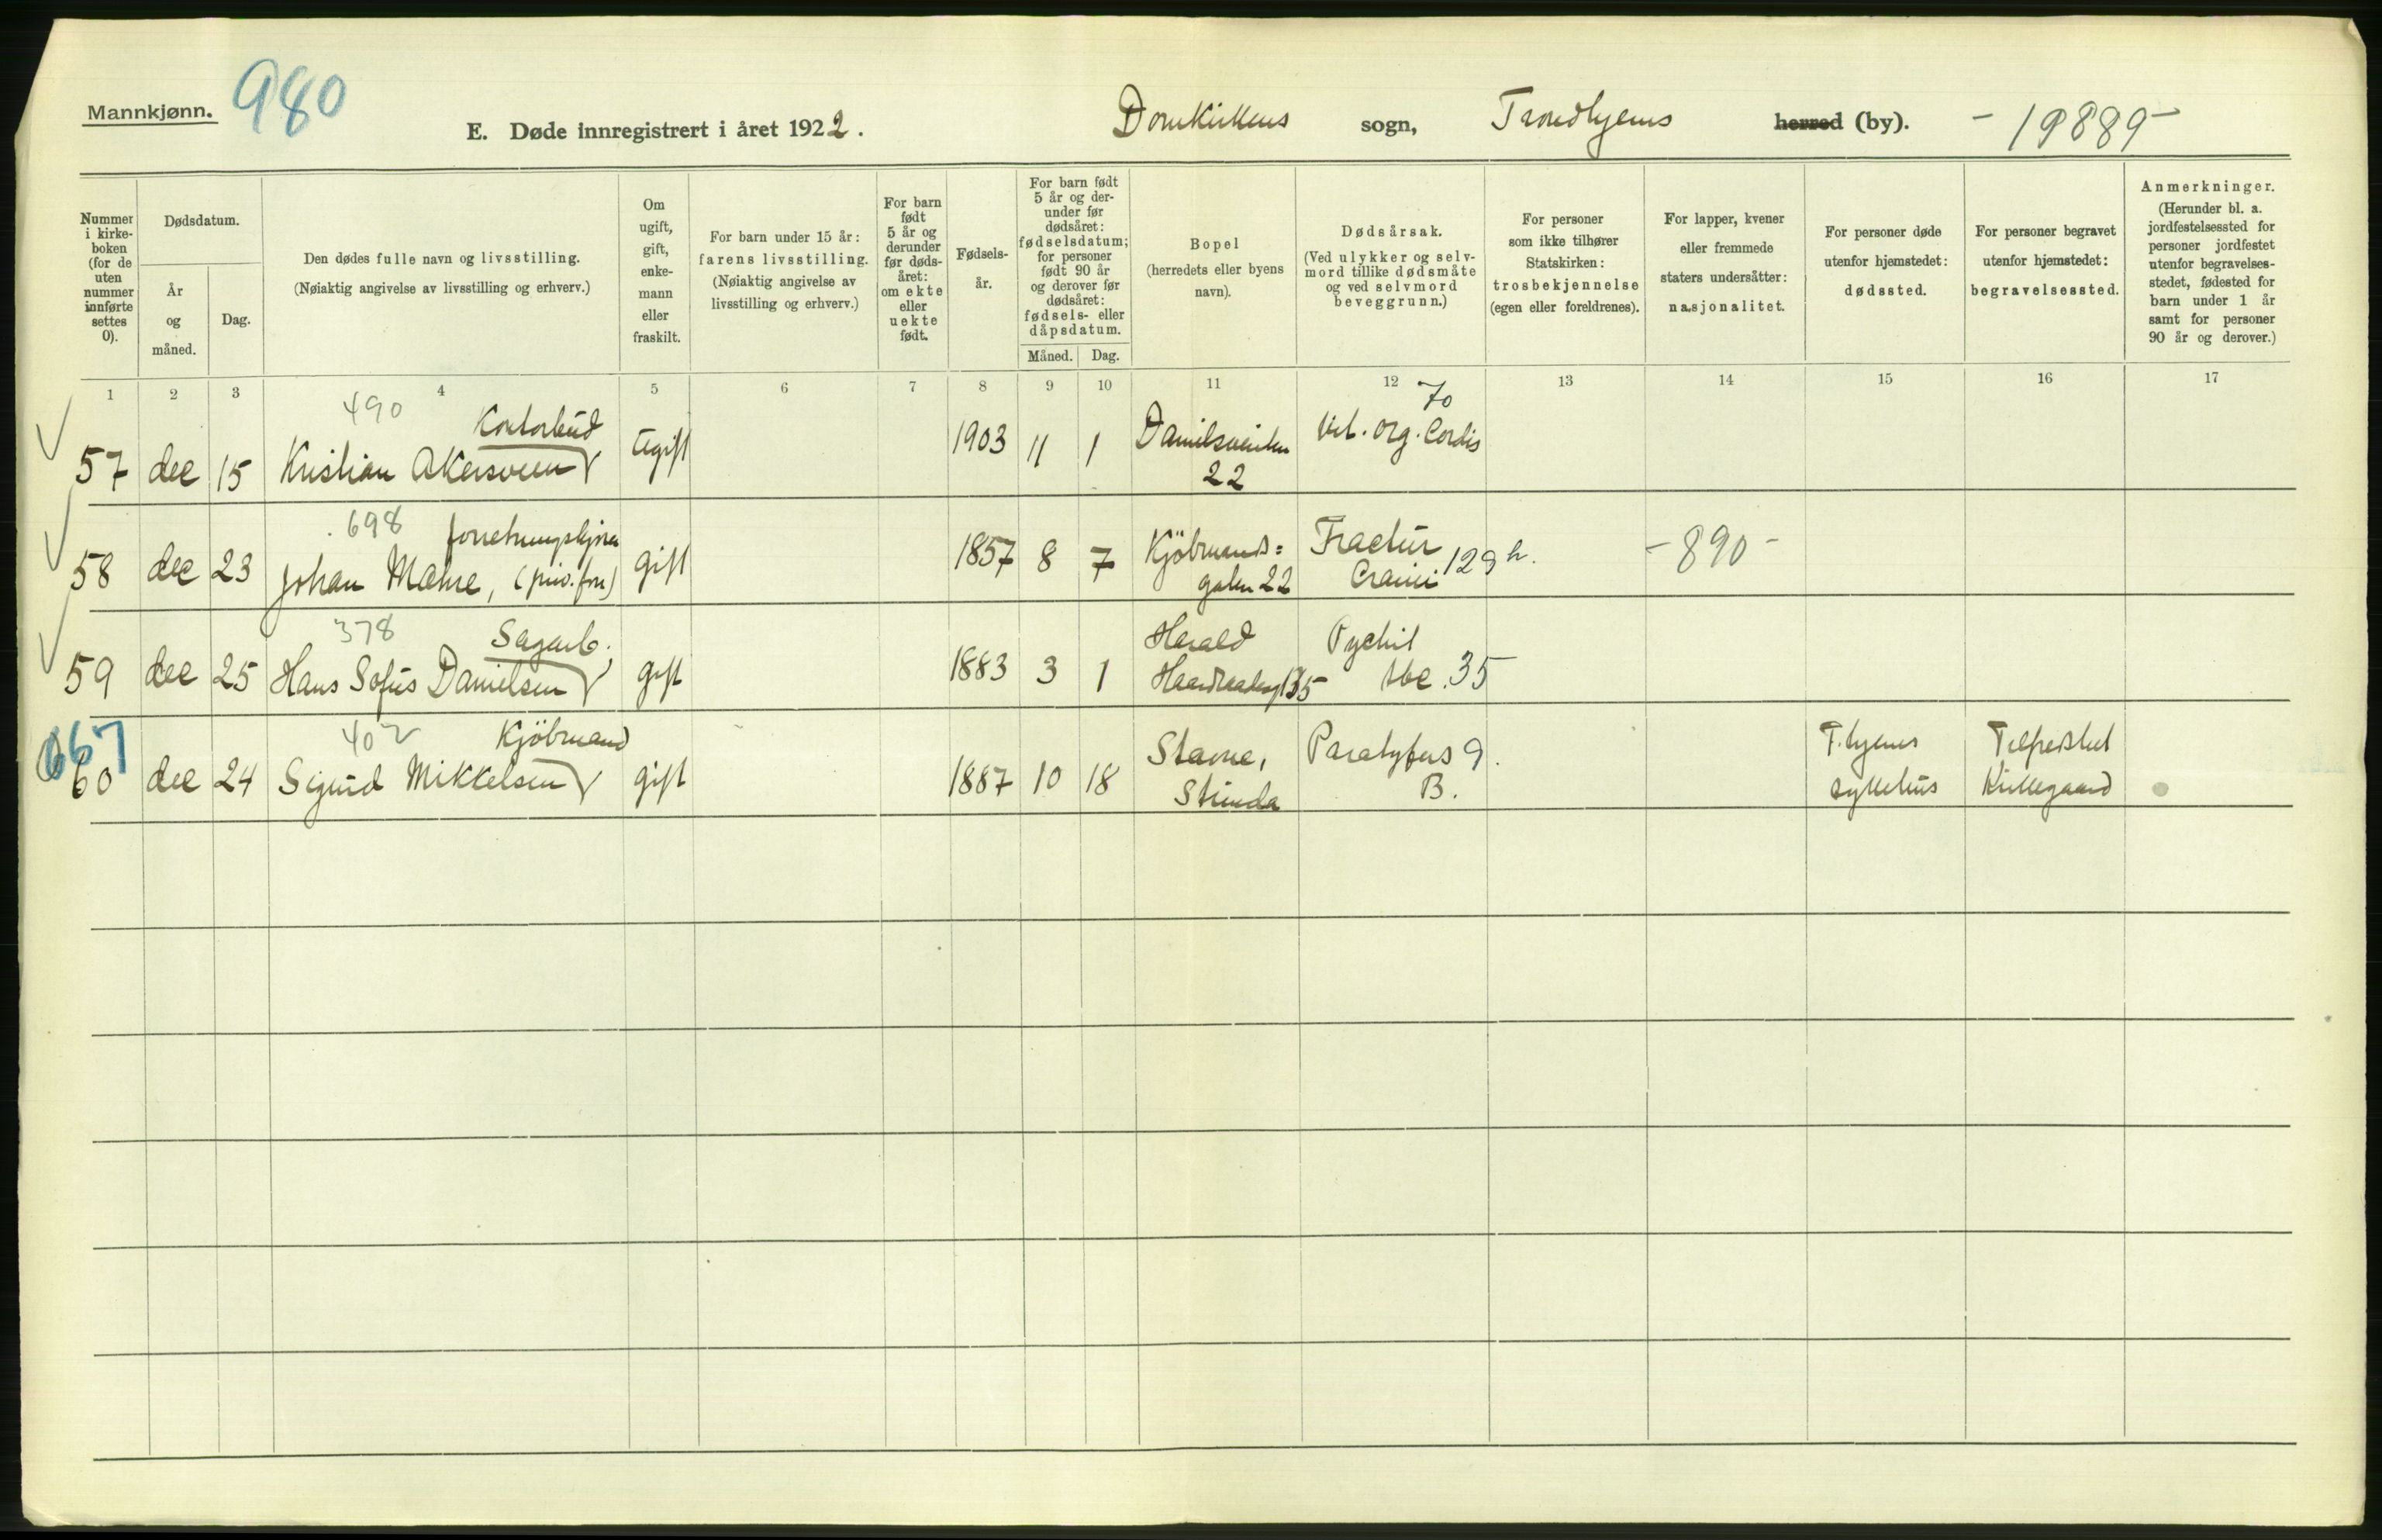 Mannkjønn. 980
E. Døde innregistrert i året 1922. Domkirkens sogn, Trondhjems herred (by). - 19889 -
Nummer i kirke- boken (for de uten nummer innførte settes 0).
Dødsdatum.
År og måned.
Dag.
Den dødes fulle navn og livsstilling.
(Nøiaktig angivelse av livsstilling og erhverv.)
Om ugift, gift, enke- mann eller fraskilt.
For barn under 15 år:
farens livsstilling.
(Nøiaktig angivelse av
livsstilling og erhverv.)
For barn født 5 år og derunder før døds- året: om ekte eller uekte født.
Fødsels- år.
For barn født 5 år og der- under før dødsåret: fødselsdatum; for personer født 90 år og derover før dødsåret: fødsels- eller dåpsdatum.
Måned. Dag.
Bopel
(herredets eller byens
navn).
Dødsårsak.
(Ved ulykker og selv-
mord tillike dødsmåte
og ved selvmord
beveggrunn.)
For personer
som ikke tilhører
Statskirken:
trosbekjennelse
(egen eller foreldrenes).
For lapper, kvener
eller fremmede
staters undersåtter:
nasjonalitet.
For personer døde
utenfor hjemstedet:
dødssted.
For personer begravet
utenfor hjemstedet:
begravelsessted.
Anmerkninger.
(Herunder bl. a.
jordfestelsessted for
personer jordfestet
utenfor begravelses-
stedet, fødested for
barn under 1 år
samt for personer
90 år og derover.)
1 2 3 4 5 6 7 8 9 10 11 12 13 14 15 16 17
490 Kontorbud 70
57 dec 15 Kristian Akersveen ugift 1903 11 1 Danielsveiten Vit. org. Cordis
22
698
58 dec 23 Johan Mahre, (priv. forr) gift 1857 8 7 Kjöbmands= Fractur 129 h. - 890 -
gaten 22 Cranii
378 Sagarb. Harald
59 dec 25 Hans Sofus Danielsen gift 1883 3 1 135 tbc. 35
667
402 Kjöbmand Stavne, Paratyfus 9. T.hjems Tilfredshet
60 dec 24 Sigurd Mikkelsen gift 1887 10 18 Strinda B. sykehus Kirkegaard